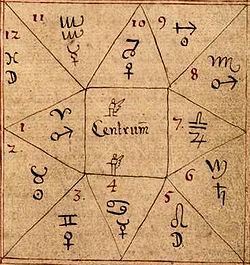 11 10 9
12 ♒
8
♓ D ♀ ♏
♈ ♂
1 Centrum 7 ♎
2 ♃
6
♉ 3 4 5 ♄
♊ ♋ ♌
D